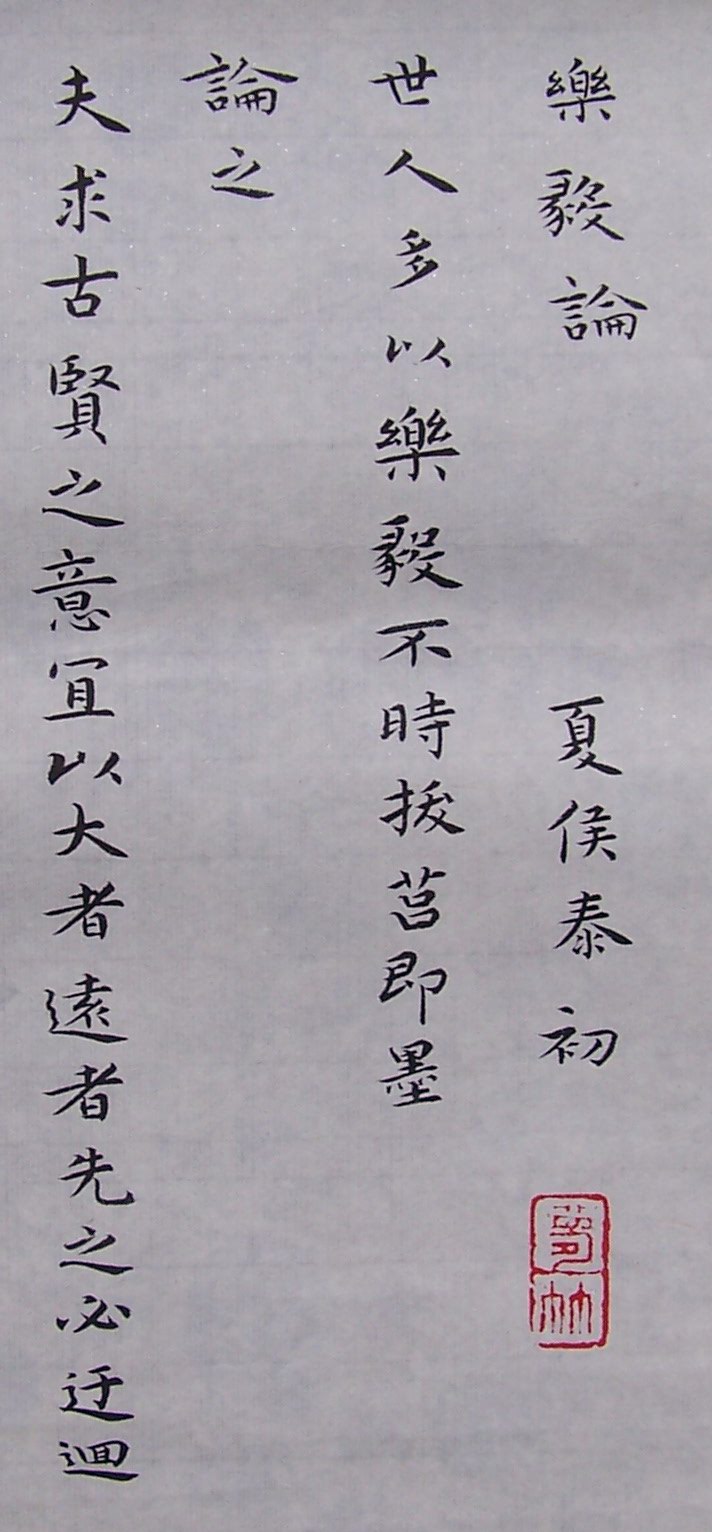 樂毅論 夏侯泰初
世人多以樂毅不時拔莒即墨
論之
夫求古賢之意宜以大者遠者先之必迂迴